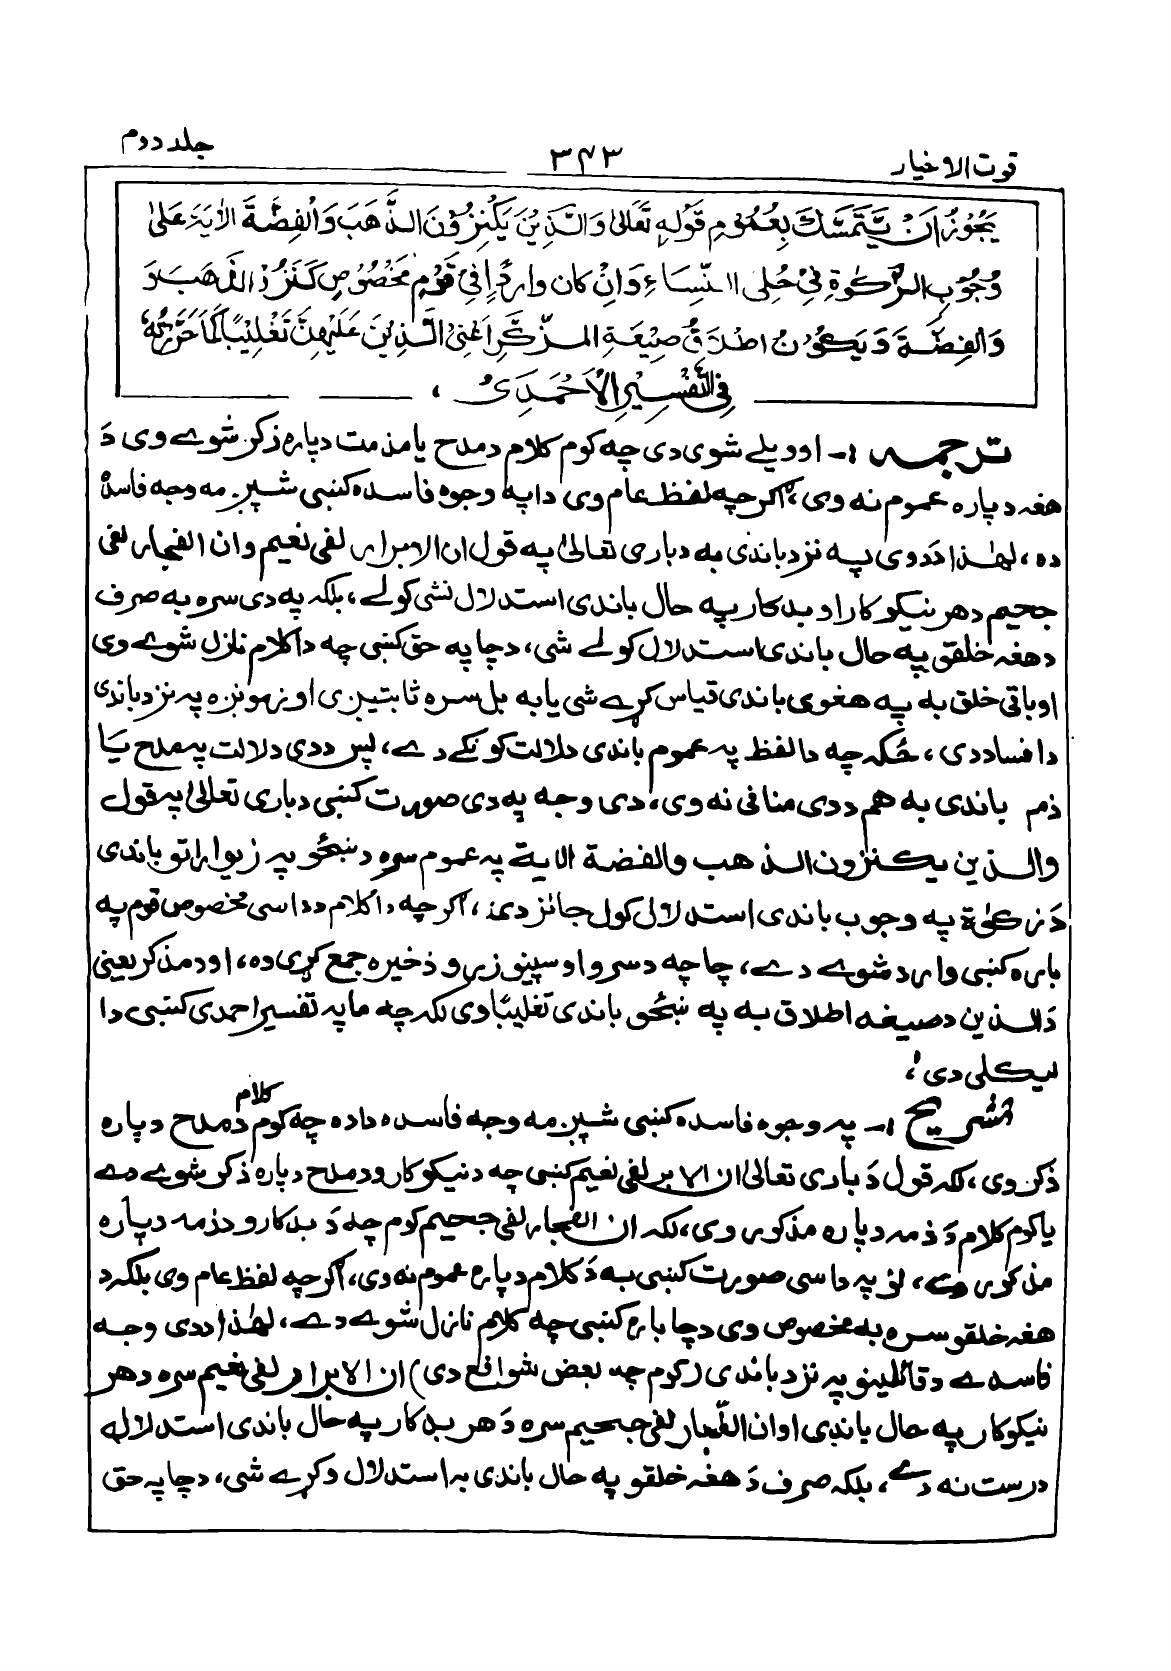 قوت الاخیار ۳۴۳ جلد دوم
یَجُوْزُ اَنْ یَّتَمَسَّكَ بِعُمُوْمِ قَوْلِهٖ تَعَالٰی وَالَّذِیْنَ یَكْنِزُوْنَ الذَّهَبَ وَالْفِضَّةَ الْاٰیَةَ عَلٰی
وُجُوْبِ الزَّكٰوةِ فِیْ حُلِی النِّسَاءِ وَاِنْ كَان وارِدًا فِیْ قَوْمٍ مَخْصُوْصٍ كَنَزُوْا الذَّهَبَ وَ
وَالْفِضَّةَ وَیَكُوْنُ اِطْلَاقُ صِیْغَةِ الْمُذَكَّرِ اَعْنِیْ الَّذِیْنَ عَلَیْهِنَّ تَغْلِیْبًا كَمَا حَرَّرْتُهٗ
فِی التَّفْسِیْرِ الْاَحْمَدِیِّ ،
ترجمہ :- او ویلے شوی دی چہ کوم کلام د مدح یا مذمت دپارہ ذکر شوے وی دَ
هغہ دپارہ عموم نہ وی ، اگرچہ لفظ عام وی دا پہ وجوہ فاسدہ کښی شپږمہ وجہ فاسدہ
دہ ، لهٰذا دَ دوی پہ نزد باندی بہ د باری تعالیٰ پہ قول ان الابرار لفی نعیم وان الفجار لفی
جحیم د هر نیکو کار او بدکار پہ حال باندی استدلال نشی کولے ، بلکہ پہ دی سرہ بہ صرف
د هغہ خلقو پہ حال باندی استدلال کولے شی ، د چا پہ حق کښی چہ دا کلام نازل شوے وی
او باقی خلق بہ پہ هغوی باندی قیاس کړے شی یا بہ بل سرہ ثابتیږی او زمونږہ پہ نزد باندی
دا فساد دی ، ځکہ چہ دا لفظ پہ عموم باندی دلالت کونکے دے ، پس د دی دلالت پہ مدح یا
ذم باندی بہ هم د دی منافی نہ وی ، دی وجہ پہ دی صورت کښی د باری تعالیٰ پہ قول
والذین یکنزون الذهب والفضة الایة پہ عموم سرہ د ښځو پہ زیوراتو باندی
دَ زکوٰۃ پہ وجوب باندی استدلال کول جائز دی ، اگرچہ دا کلام د داسی مخصوص قوم پہ
بارہ کښی وارد شوے دے ، چا چہ د سرو او سپینو زرو ذخیرہ جمع کړی دہ ، او د مذکر یعنی
دَ الذین د صیغہ اطلاق بہ پہ ښځو باندی تغلیبًا وی لکہ چہ ما پہ تفسیر احمدی کښی دا
لیکلی دی ،
تشریح :- پہ وجوہ فاسدہ کښی شپږمہ وجہ فاسدہ دادہ چہ کوم کلام د مدح دپارہ
ذکر وی ، لکہ قول دَ باری تعالیٰ ان الابرار لفی نعیم کښی چہ د نیکو کارو د مدح دپارہ ذکر شوے دے
یا کوم کلام دَ ذمہ دپارہ مذکور وی ، لکہ ان الفجار لفی جحیم کوم چہ دَ بدکارو د ذمہ دپارہ
مذکور دے ، نو پہ داسی صورت کښی بہ دَ کلام دپارہ عموم نہ وی ، اگرچہ لفظ عام وی بلکہ د
هغہ خلقو سرہ بہ مخصوص وی د چا بارہ کښی چہ کلام نازل شوے دے ، لهٰذا د دی وجہ
فاسدے د قائلینو پہ نزد باندی (کوم چہ بعض شوافع دی) ان الابرار لفی نعیم سرہ د هر
نیکو کار پہ حال باندی او ان الفجار لفی جحیم سرہ دَ هر بدکار پہ حال باندی استدلال
درست نہ دے ، بلکہ صرف دَ هغہ خلقو پہ حال باندی بہ استدلال وکړے شی ، د چا پہ حق